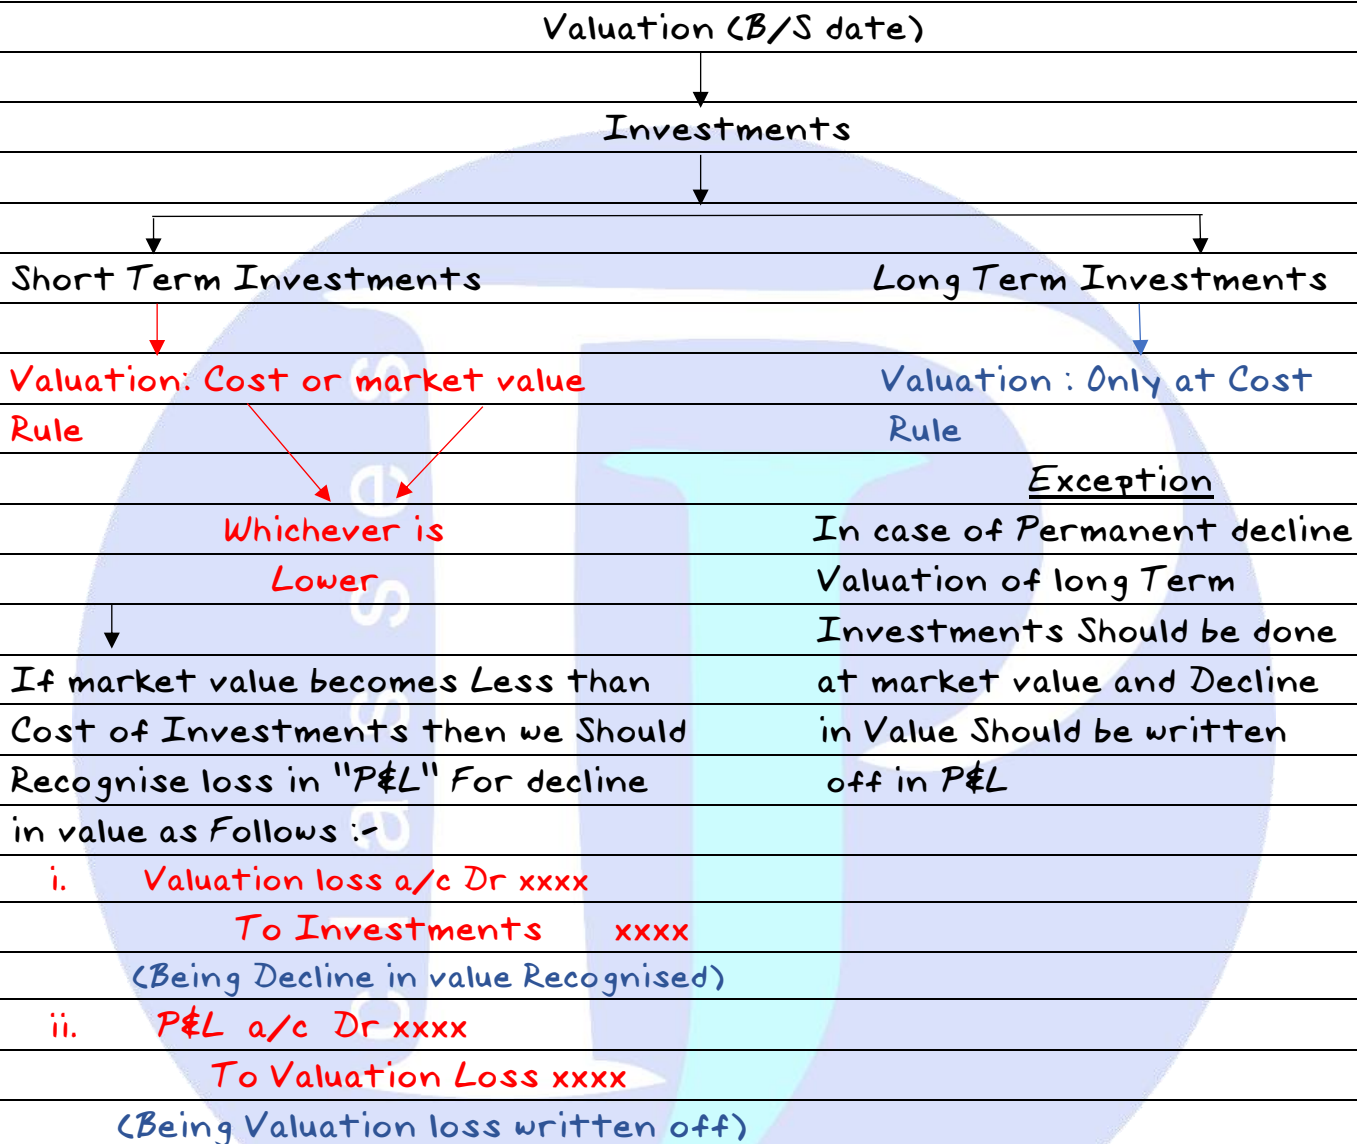 Valuation (B/S date)
Investments
Short Term Investments
Long Term Investments
Valuation: Cost or market value
Rule
Whichever is
Lower
If market value becomes Less than
Cost of Investments then we Should
Recognise loss in "P&L" For decline
in value as Follows :-
i. Valuation loss a/c Dr xxxx
To Investments xxxx
(Being Decline in value Recognised)
ii. P&L a/c Dr xxxx
To Valuation Loss xxxx
(Being Valuation loss written off)
Valuation : Only at Cost
Rule
Exception
In case of Permanent decline
Valuation of long Term
Investments Should be done
at market value and Decline
in Value Should be written
off in P&L
classes